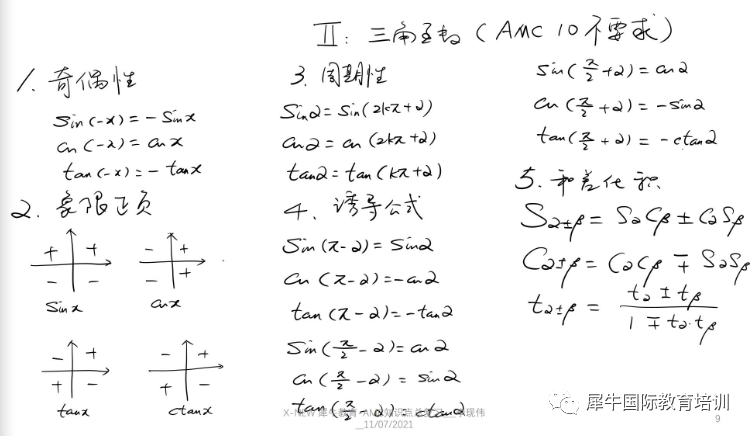 II: 三角函数 (AMC 10不要求)
1. 奇偶性
sin(-x) = -sinx
cos(-x) = cosx
tan(-x) = -tanx
2. 象限正负
+ +
- -
sinx
- +
- +
cosx
- +
+ -
tanx
- +
+ -
ctanx
3. 周期性
sinα = sin(2kπ+α)
cosα = cos(2kπ+α)
tanα = tan(kπ+α)
4. 诱导公式
sin(π-α) = sinα
cos(π-α) = -cosα
tan(π-α) = -tanα
sin(π/2-α) = cosα
cos(π/2-α) = sinα
tan(π/2-α) = ctanα
sin(π/2+α) = cosα
cos(π/2+α) = -sinα
tan(π/2+α) = -ctanα
5. 和差化积
Sα±β = SαCβ ± CαSβ
Cα±β = CαCβ ∓ SαSβ
tα±β = (tα ± tβ)/(1 ∓ tα·tβ)
11/07/2021
犀牛国际教育培训
9